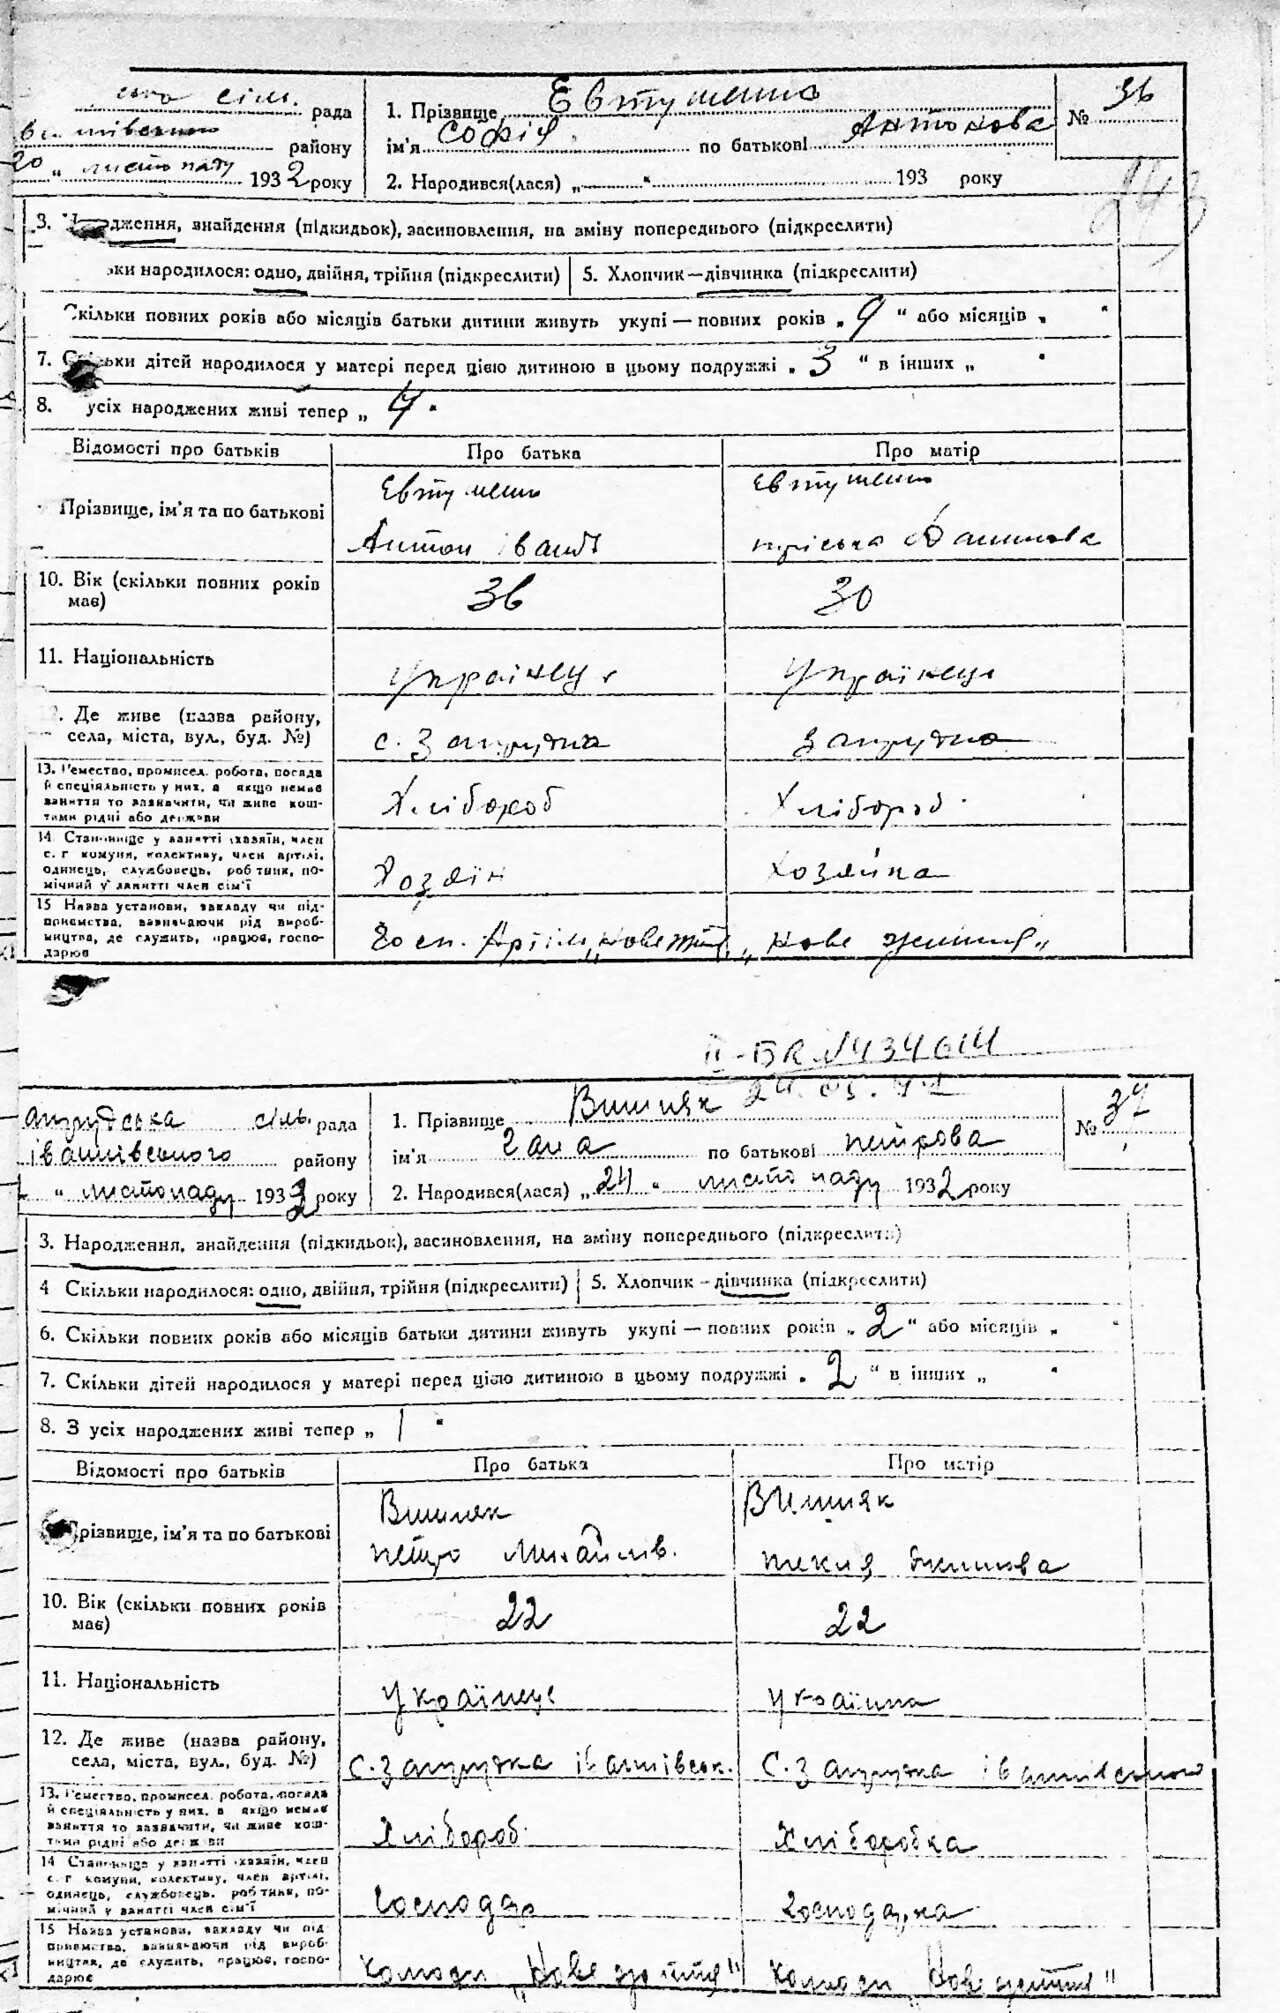 сіль. рада
району
20 „ листопаду 1932 року
1. Прізвище Евтушенко
ім'я Софія по батькові Антонова
№ 36
2. Народився(лася) „ “ 193 року
243
3. дження, знайдення (підкидьок), засиновлення, на зміну попереднього (підкреслити)
ьки народилося: одно, двійня, трійня (підкреслити) 5. Хлопчик — дівчинка (підкреслити)
Скільки повних років або місяців батьки дитини живуть укупі — повних років „ 9 “ або місяців „ “
7. Скільки дітей народилося у матері перед цією дитиною в цьому подружжі „ 3 “ в інших „ “
8. усіх народжених живі тепер „ 4 “
Відомості про батьків Про батька Про матір
Прізвище, ім'я та по батькові
Евтушенко Евтушенко
Антон Іванів Пріська
10. Вік (скільки повних років має)
36 30
11. Національність
Українец Українец
Де живе (назва району, села, міста, вул., буд. №)
с. Запрудка Запрудка
13. Ремество, промисел, робота, посада
й спеціяльність у них, а якщо немає
заняття то зазначити, чи живе кош-
тами рідні або держави
Хлібороб Хлібороб
14. Становище у занятті (хазяїн, член
с. г. комуни, колективу, член артілі,
одинець, службовець, робітник, по-
мічний у занятті член сім'ї
Хозяїн Хозяйка
15 Назва установи, закладу чи під-
приємства, зазначаючи рід вироб-
ництва, де служить, працює, госпо-
дарює
Госп. Артіль „Нове життя „Нове життя“
II-БК №434614
Іванківського району
„ листопаду 1932 року
1. Прізвище Вишняк
ім'я Гана по батькові Петрова
№ 37
2. Народився(лася) „ 24 “ листопаду 1932 року
3. Народження, знайдення (підкидьок), засиновлення, на зміну попереднього (підкреслити)
4 Скільки народилося: одно, двійня, трійня (підкреслити) 5. Хлопчик — дівчинка (підкреслити)
6. Скільки повних років або місяців батьки дитини живуть укупі — повних років „ 2 “ або місяців „ “
7. Скільки дітей народилося у матері перед цією дитиною в цьому подружжі „ 2 “ в інших „ “
8. З усіх народжених живі тепер „ 1 “
Відомості про батьків Про батька Про матір
Прізвище, ім'я та по батькові
Вишняк Вишняк
Петро Михайлів. Текля Якимова
10. Вік (скільки повних років має)
22 22
11. Національність
Українець Українка
12. Де живе (назва району, села, міста, вул., буд. №)
С. Запрудка Іванківськ. С. Запрудка Іванківського
13. Ремество, промисел, робота, посада
й спеціяльність у них, а якщо немає
заняття то зазначити, чи живе кош-
тами рідні або держави
Хлібороб Хліборобка
14 Становище у занятті (хазяїн, член
с. г. комуни, колективу, член артілі,
одинець, службовець, робітник, по-
мічний у занятті член сім'ї
Господар Господарка
15 Назва установи, закладу чи під-
приємства, зазначаючи рід вироб-
ництва, де служить, працює, госпо-
дарює
„Нове життя“ „Нове життя“